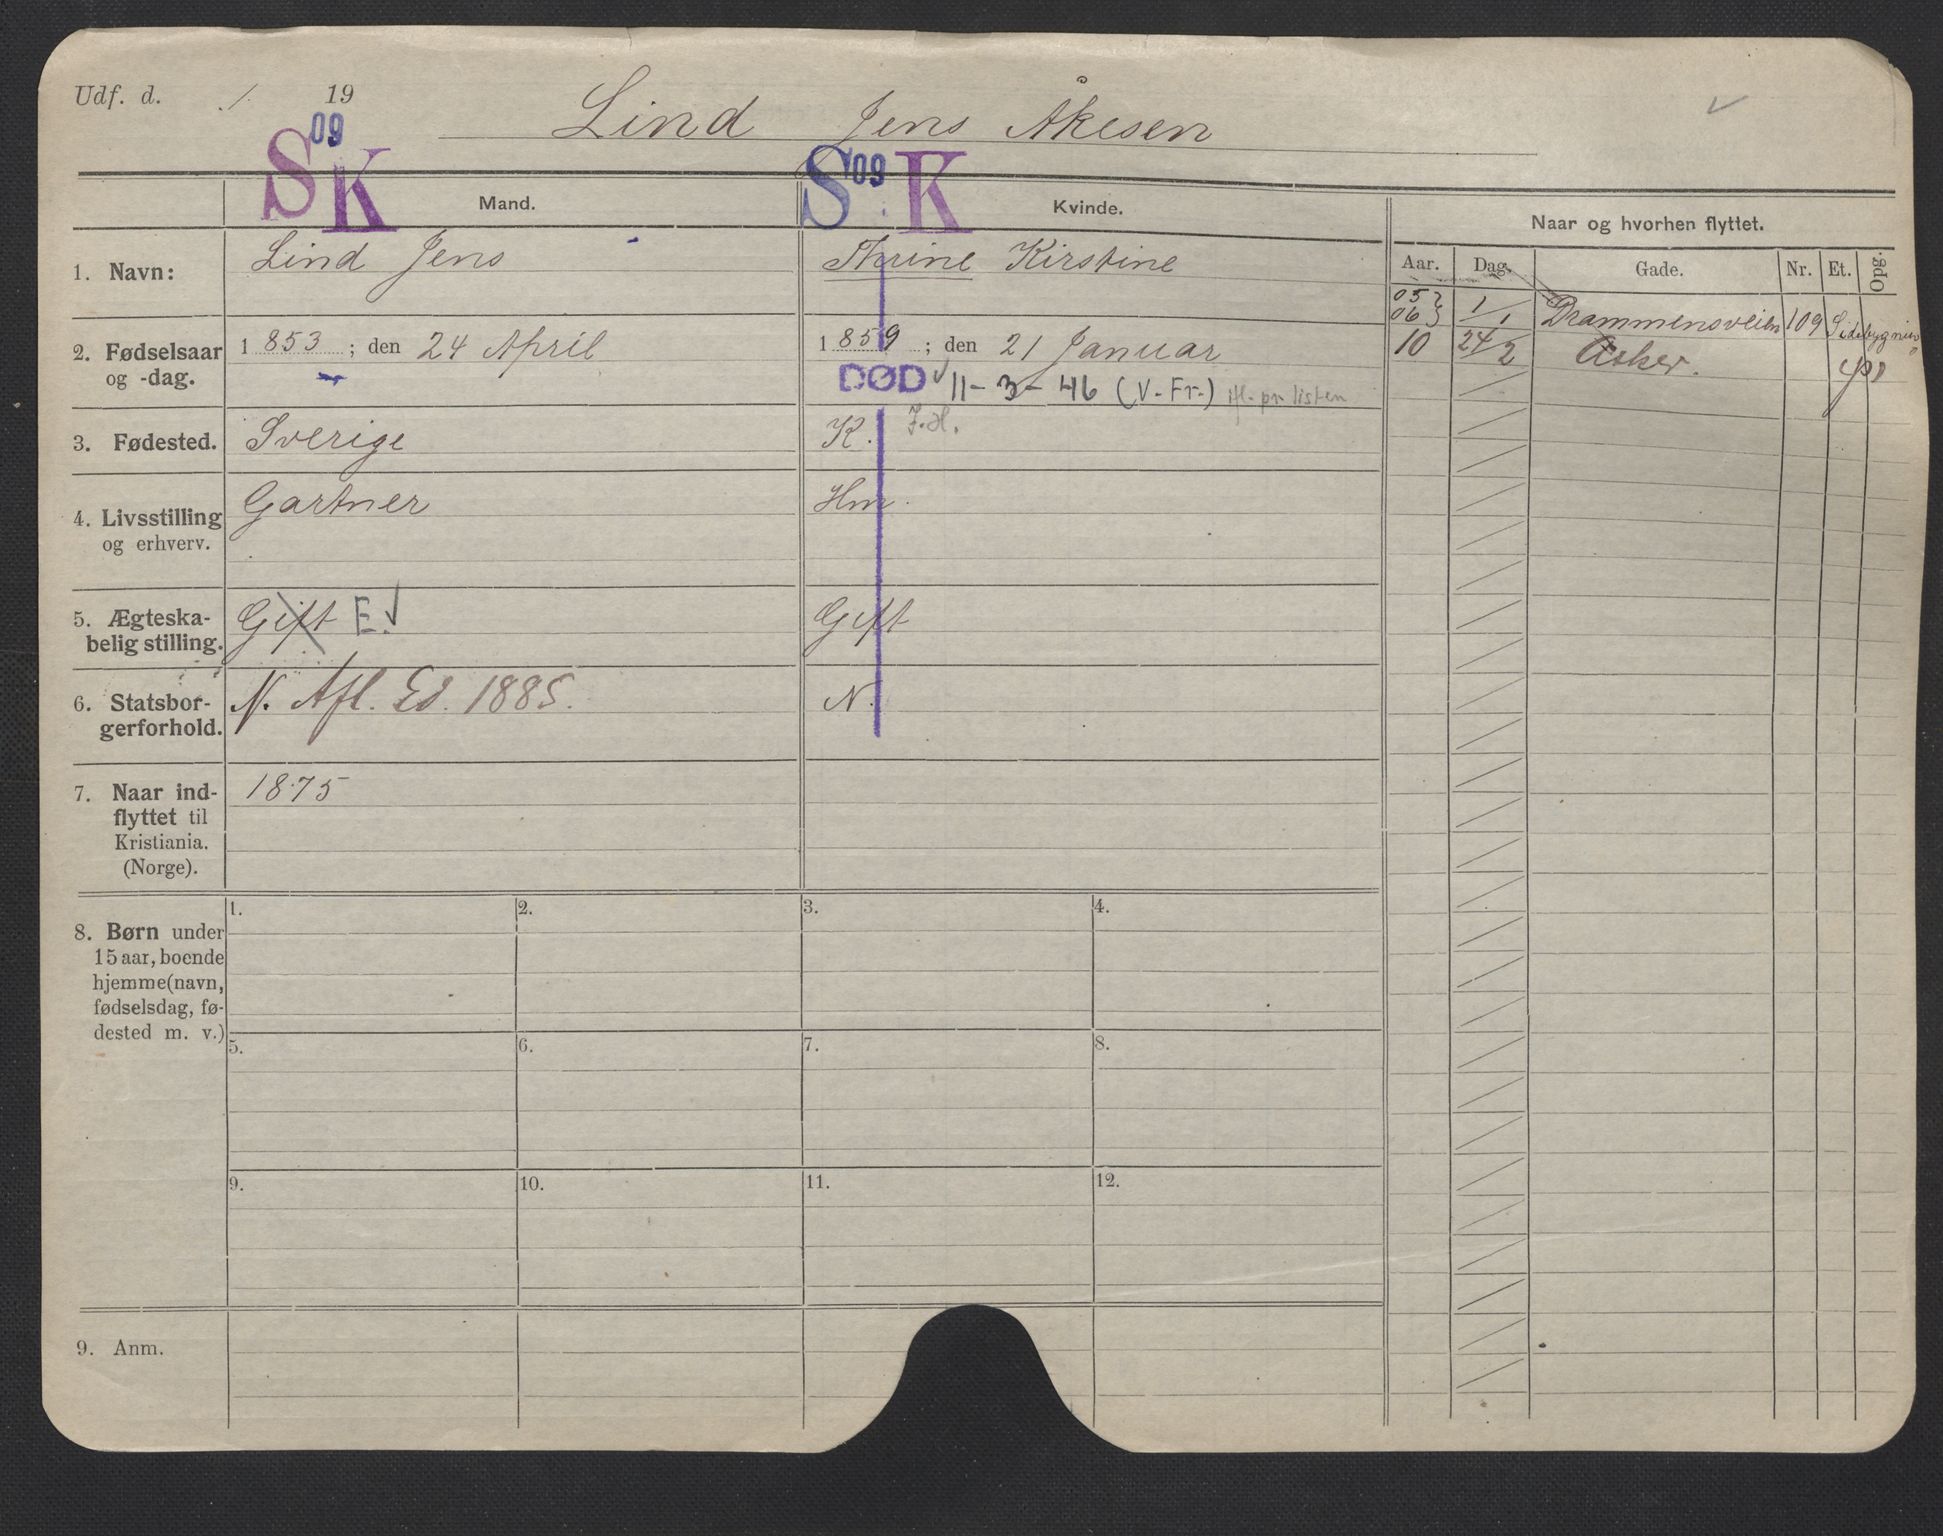 Udf. d. 1 19 Lind Jens Åkesen
09 SK S 09 K
Mand. Kvinde. Naar og hvorhen flyttet.
Aar. Dag. Gade. Nr. Et. Opg.
1. Navn: Lind Jens Thrine Kirstine
05 } 06 } 1/1 Drammensveien 109 Sidebygnin
2. Fødselsaar og -dag. 1853; den 24 April 1859; den 21 Januar
10 24/2 Asker.
DØD 11-3-46 (V.Fr.) fl. pr listen
3. Fødested. Sverige K. J.H.
4. Livsstilling og erhverv. Gartner Hm.
5. Ægteska-
belig stilling. Gift E. Gift
6. Statsbor-
gerforhold. N. Afl. Ed. 1885. N.
7. Naar ind-
flyttet til
Kristiania.
(Norge). 1875
8. Børn under
15 aar, boende
hjemme (navn,
fødselsdag, fø-
dested m. v.)
1. 2. 3. 4.
5. 6. 7. 8.
9. 10. 11. 12.
9. Anm.